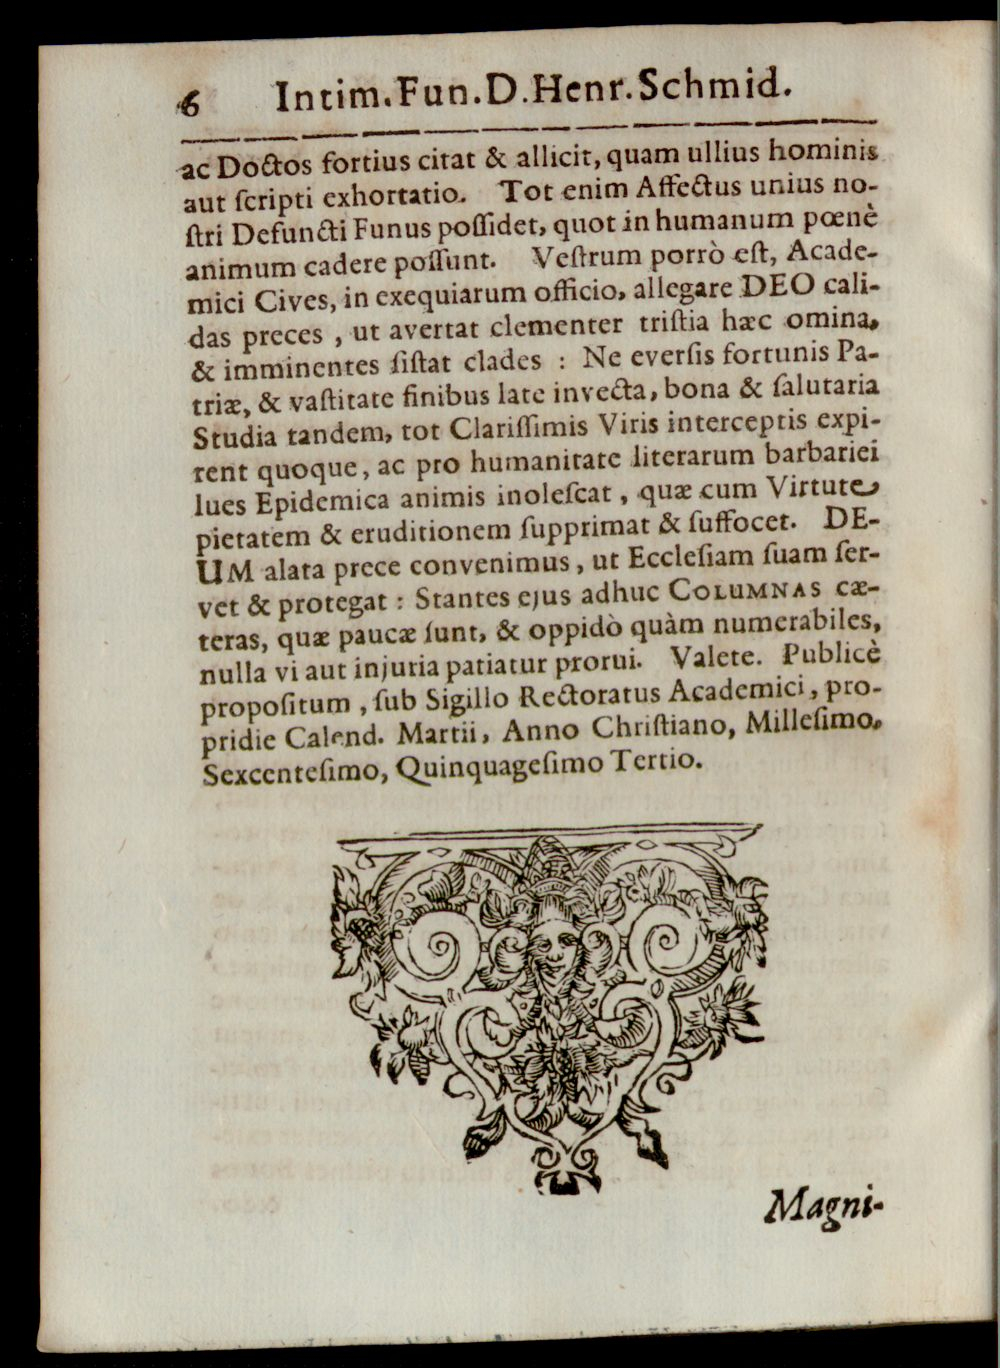 6 Intim. Fun. D. Henr. Schmid.
ac Doctos fortius citat & allicit, quam ullius hominis
aut ſcripti exhortatio. Tot enim Affectus unius no-
ſtri Defuncti Funus poſſidet, quot in humanum pœnè
animum cadere poſſunt. Veſtrum porrò eſt, Acade-
mici Cives, in exequiarum officio, allegare DEO cali-
das preces, ut avertat clementer triſtia hæc omina,
& imminentes ſiſtat clades : Ne everſis fortunis Pa-
triæ, & vaſtitate finibus late invecta, bona & ſalutaria
Studia tandem, tot Clariſſimis Viris interceptis expi-
rent quoque, ac pro humanitate literarum barbariei
lues Epidemica animis inoleſcat, quæ cum Virtute
pietatem & eruditionem ſupprimat & ſuffocet. DE-
UM alata prece convenimus, ut Eccleſiam ſuam ſer-
vet & protegat : Stantes ejus adhuc COLUMNAS cæ-
teras, quæ paucæ ſunt, & oppidò quàm numerabiles,
nulla vi aut injuria patiatur prorui. Valete. Publicè
propoſitum, ſub Sigillo Rectoratus Academici, pro-
pridie Calend. Martii, Anno Chriſtiano, Milleſimo,
Sexcenteſimo, Quinquageſimo Tertio.
Magni-